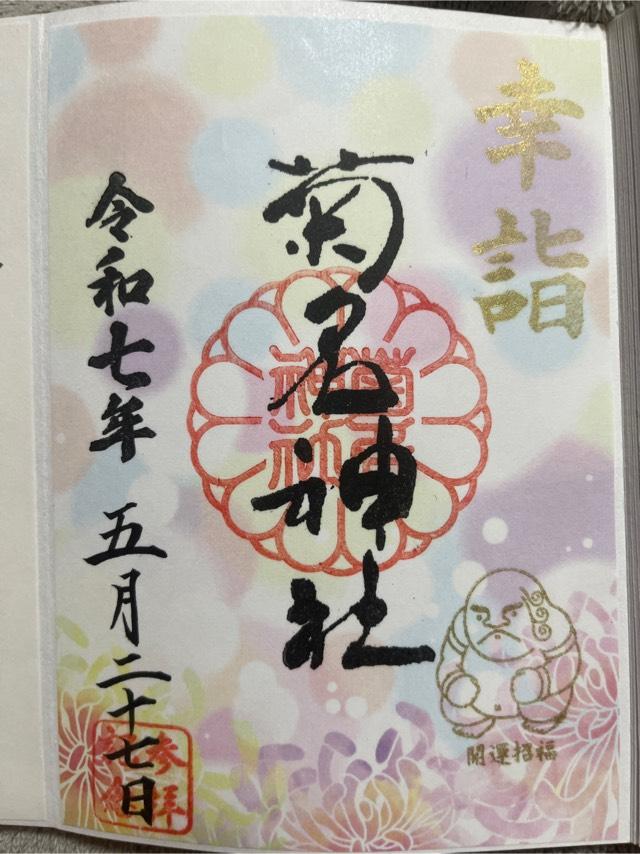 幸詣
開運招福
菊名神社
令和七年 五月二十七日
参拝